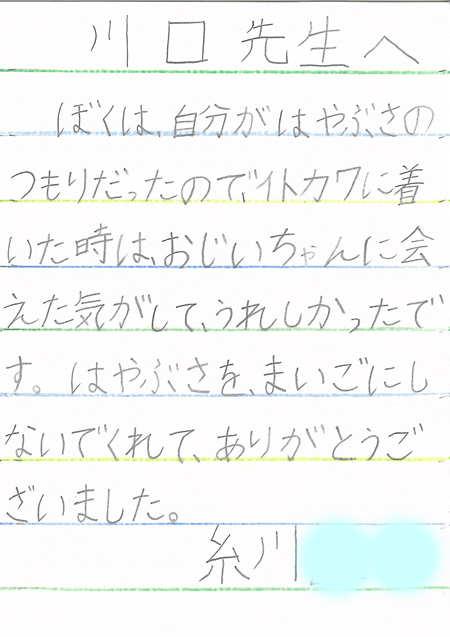 川口先生へ
ぼくは、自分がはやぶさの
つもりだったので、イトカワに着
いた時は、おじいちゃんに会
えた気がして、うれしかったで
す。はやぶさを、まいごにし
ないでくれて、ありがとうご
ざいました。
糸川